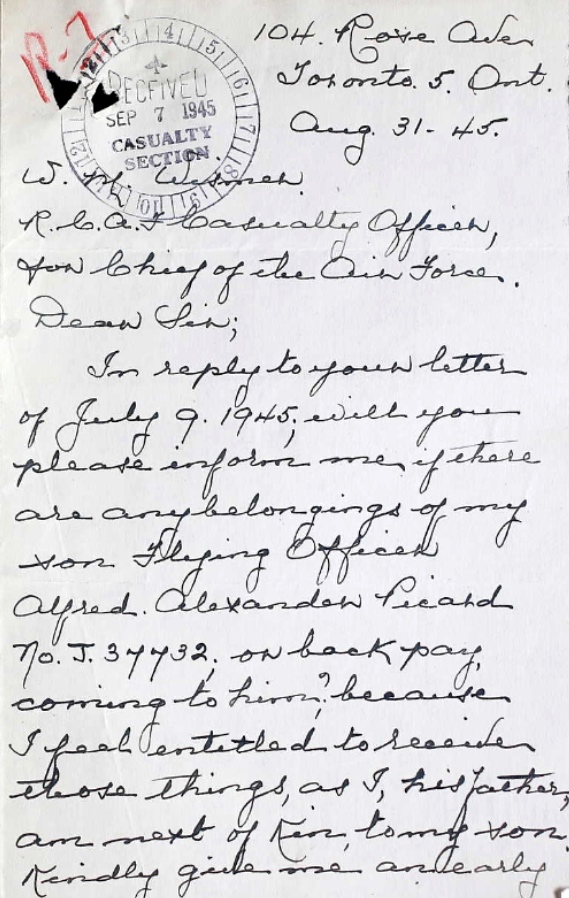 R-7
RECEIVED
SEP 7 1945
CASUALTY
SECTION
104. Rose Ave
Toronto. 5. Ont.
Aug. 31-45.
W.
R.C.A.F Casualty Officer,
for Chief of the Air Force.
Dear Sir;
In reply to your letter
of July 9. 1945, will you
please inform me, if there
are any belongings of my
son Flying Officer
Alfred. Alexander Picard
No. J. 37732, or back pay,
coming to him? because
I feel entitled to receive
those things, as I, his father,
am next of Kin, to my son.
Kindly give me an early